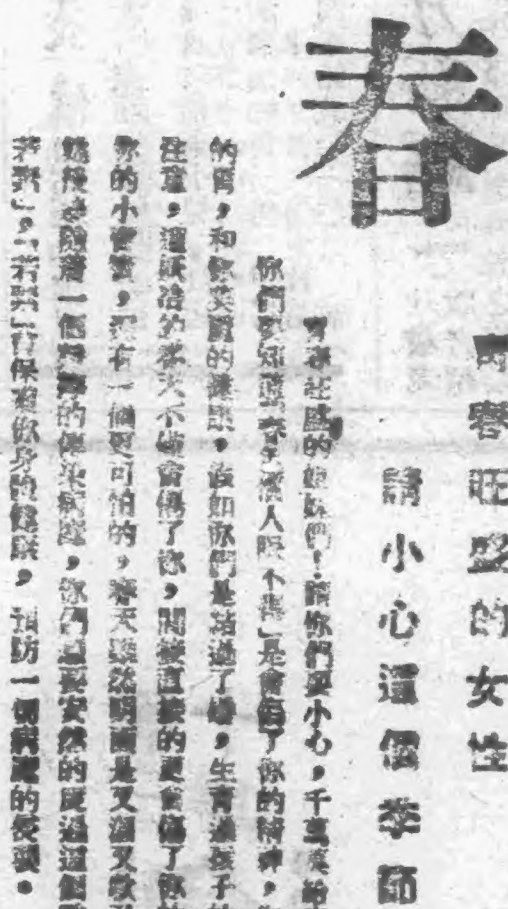 春
青春旺盛的女性
請小心這個季節
青春旺盛的姐妹們！請你們要小心，千萬
你們要知道「春色惱人眠不得」是會傷了你的精神，
的胃，和你美麗的健康，假如你們是結過了婚，生育過孩子
注意，這妖冶的春天不僅會傷了你，間接直接的更會傷了你
你的小寶寶，還有一個更可怕的，春天雖然明媚是又溫又
着一個 的傳染病症，你們 要安然的度過這個
若素」，「若素」會保着你身體健康，預防一切病魔的侵襲。